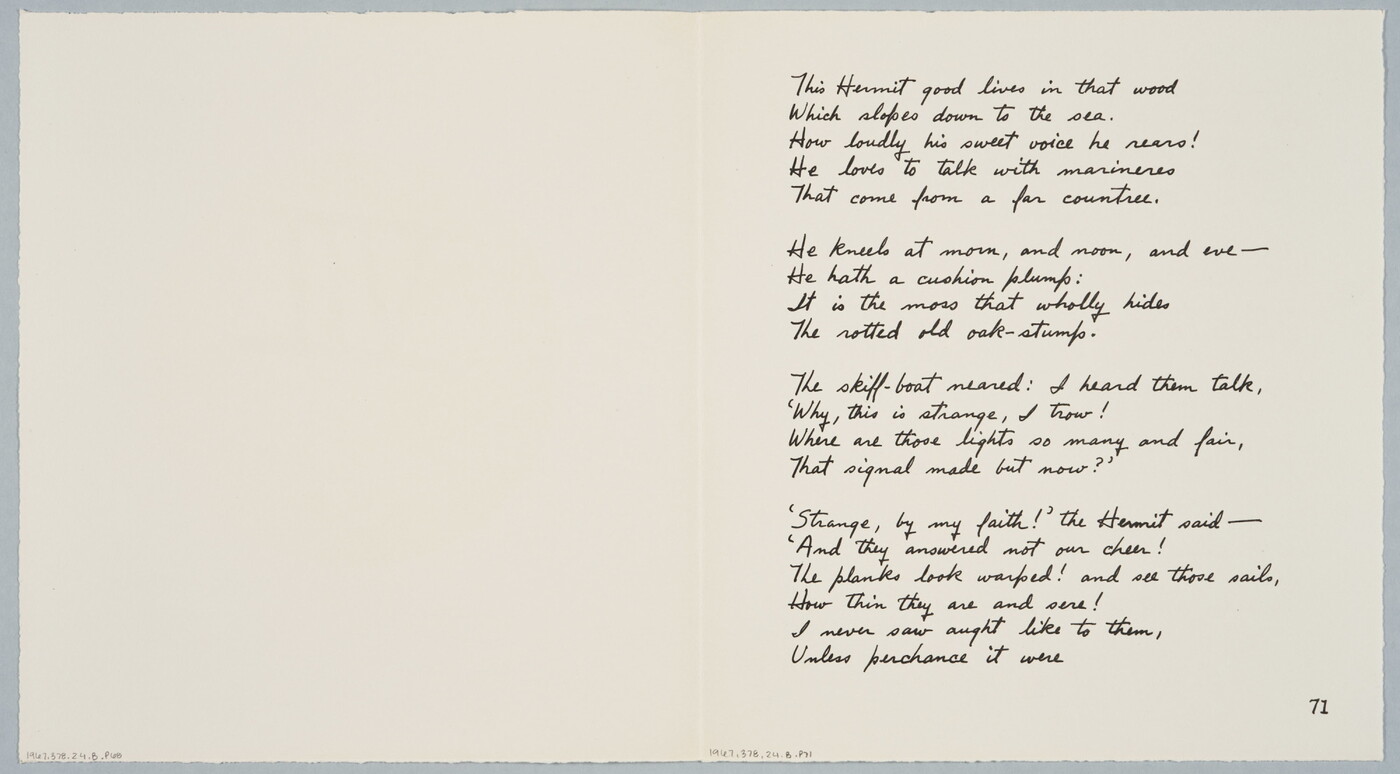 This Hermit good lives in that wood
Which slopes down to the sea.
How loudly his sweet voice he rears!
He loves to talk with marineres
That come from a far countree.
He kneels at morn, and noon, and eve—
He hath a cushion plump:
It is the moss that wholly hides
The rotted old oak-stump.
The skiff-boat neared: I heard them talk,
‘Why, this is strange, I trow!
Where are those lights so many and fair,
That signal made but now?’
‘Strange, by my faith!’ the Hermit said—
‘And they answered not our cheer!
The planks look warped! and see those sails,
How thin they are and sere!
I never saw aught like to them,
Unless perchance it were
71
1967.378.24.B.P68
1967.378.24.B.P71